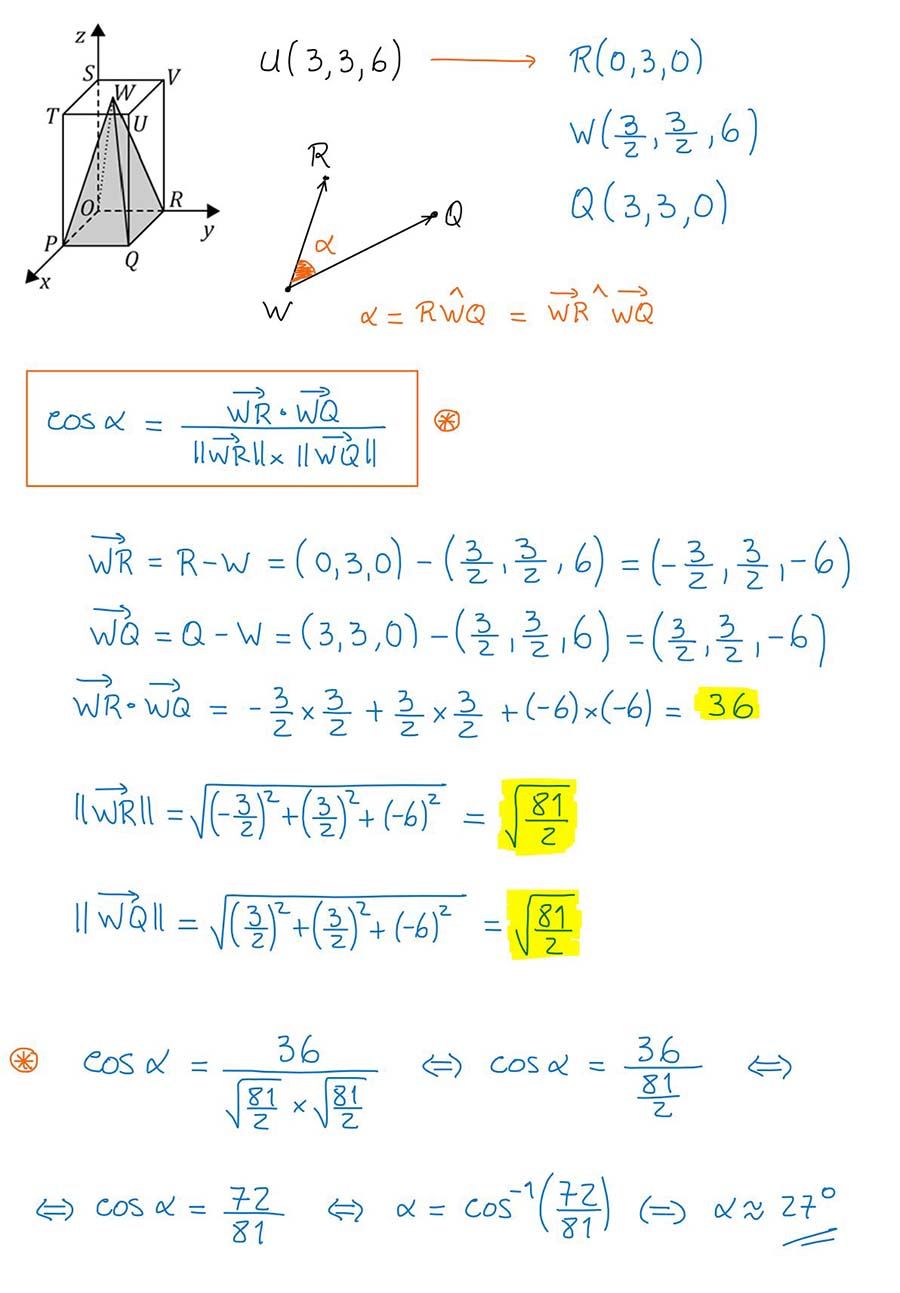 z
S V
W
T U
O R
y
P Q
x
U(3,3,6) ⟶ R(0,3,0)
W(3/2, 3/2, 6)
Q(3,3,0)
R
Q
α
W
α = RŴQ = WR⃗ ^ WQ⃗
cos α = (WR⃗ · WQ⃗) / (||WR⃗|| × ||WQ⃗||) ⊛
WR⃗ = R - W = (0,3,0) - (3/2, 3/2, 6) = (-3/2, 3/2, -6)
WQ⃗ = Q - W = (3,3,0) - (3/2, 3/2, 6) = (3/2, 3/2, -6)
WR⃗ · WQ⃗ = -3/2 × 3/2 + 3/2 × 3/2 + (-6) × (-6) = 36
||WR⃗|| = √((-3/2)² + (3/2)² + (-6)²) = √(81/2)
||WQ⃗|| = √((3/2)² + (3/2)² + (-6)²) = √(81/2)
⊛ cos α = 36 / (√(81/2) × √(81/2)) ⇔ cos α = 36 / (81/2) ⇔
⇔ cos α = 72/81 ⇔ α = cos⁻¹(72/81) ⇔ α ≈ 27°